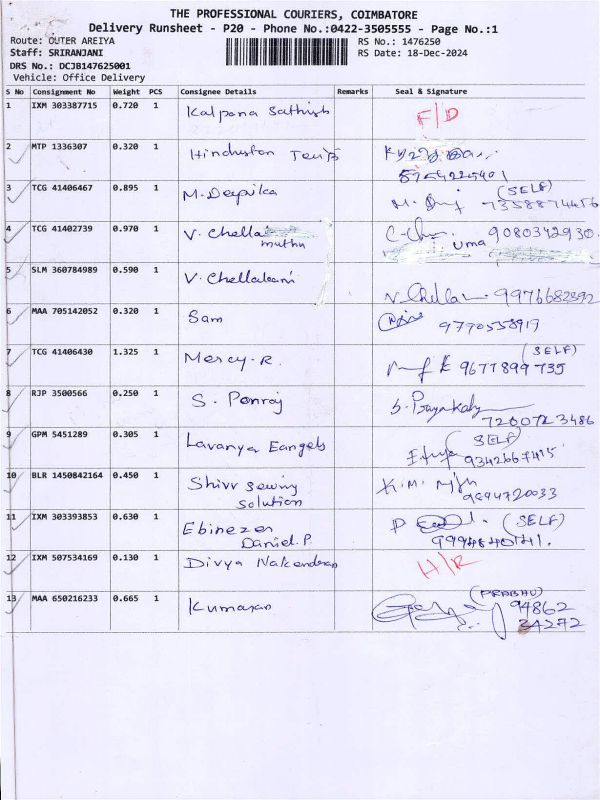 THE PROFESSIONAL COURIERS, COIMBATORE
Delivery Runsheet - P20 - Phone No.:0422-3505555 - Page No.:1
Route: OUTER AREIYA RS No.: 1476250
Staff: SRIRANJANI RS Date: 18-Dec-2024
DRS No.: DCJB147625001
Vehicle: Office Delivery
S No Consignment No Weight PCS Consignee Details Remarks Seal & Signature
1 IXM 303387715 0.720 1 Kalpana Sathish F/D
2 MTP 1336307 0.320 1 Hindustan
3 TCG 41406467 0.895 1 M. Deepika (SELF)
M. 7358874456
4 TCG 41402739 0.970 1 V. Chella 9080342930
muthu uma
5 SLM 360784989 0.590 1 V. Chellalani
V. Chella 9976682892
6 MAA 705142052 0.320 1 Sam
9790558919
7 TCG 41406430 1.325 1 Mercy. R (SELF)
9677899735
8 RJP 3500566 0.250 1 S. Ponraj
7200723486
9 GPM 5451289 0.305 1 Lavanya Eangels (SELF)
9342667415
10 BLR 1450842164 0.450 1 Shivr sewing K.M.
Solution 9894720033
11 IXM 303393853 0.630 1 Ebinezer (SELF)
Daniel. P.
12 IXM 507534169 0.130 1 Divya Nakendran H/R
13 MAA 650216233 0.665 1 Kumaran (PRABHU)
94862
34272